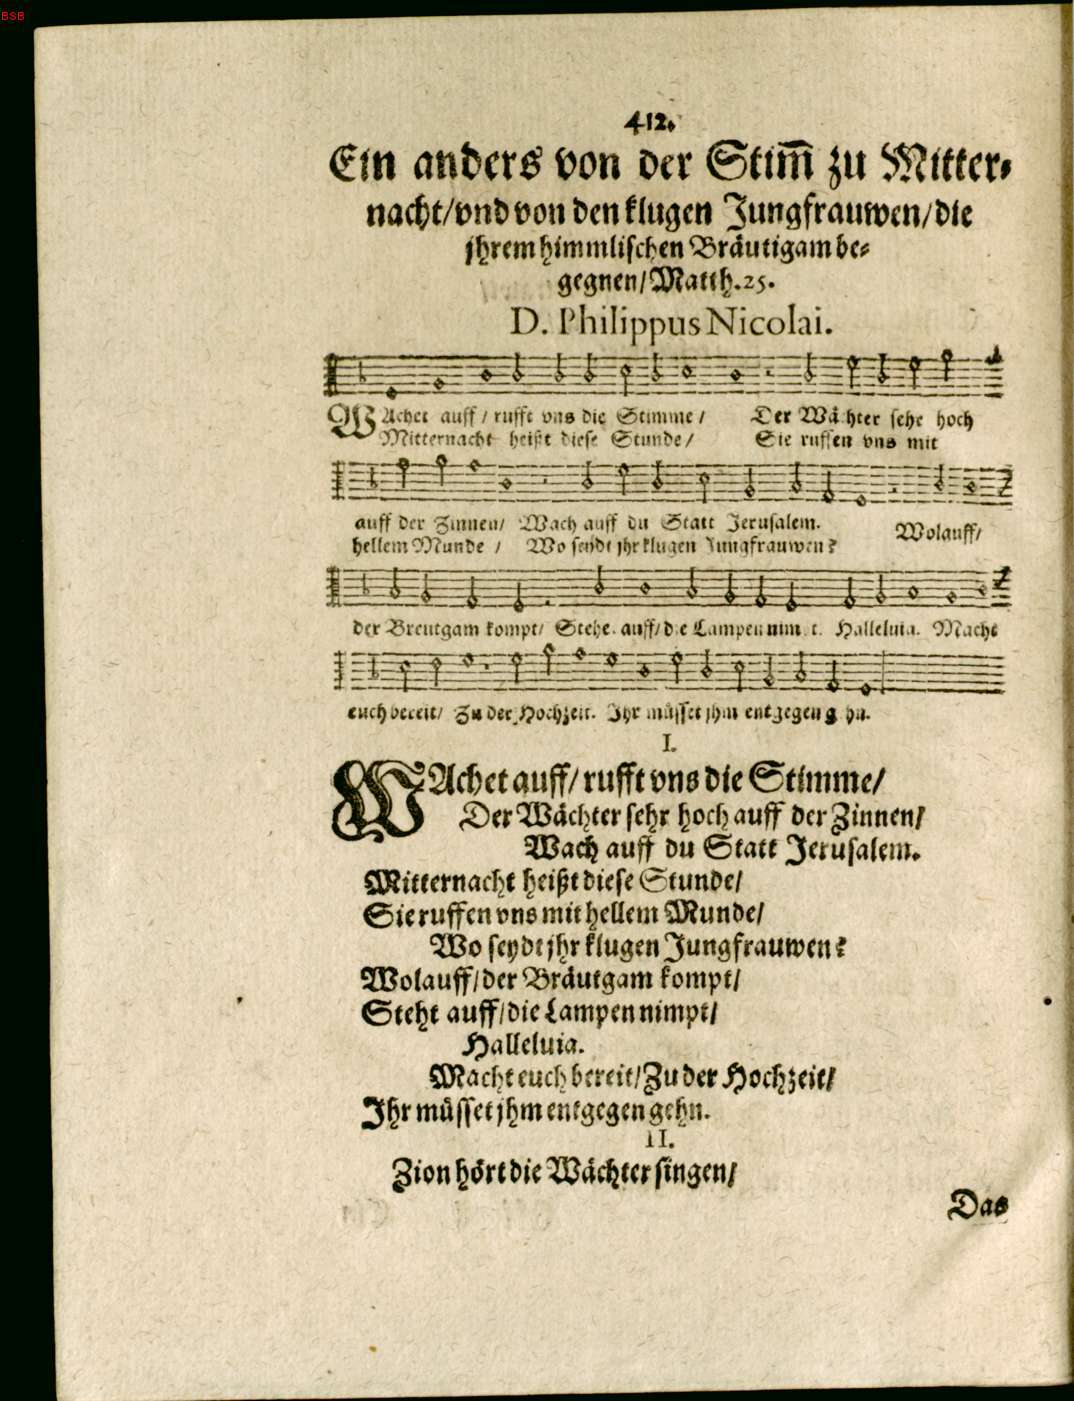 BSB
412.
Ein anders von der Stim̅ zu Mitter⸗
nacht/vnd von den klugen Jungfrauwen/die
jhrem himmlischen Bräutigam be⸗
gegnen/Matth.25.
D. Philippus Nicolai.
WAchet auff / rufft vns die Stimme / Der Wächter sehr hoch
Mitternacht heißt diese Stunde/ Sie ruffen vns mit
auff der Zinnen/ Wach auff du Statt Jerusalem. Wolauff/
hellem Munde / Wo seydt jhr klugen Jungfrauwen?
der Breutgam kompt/ Stehe auff/die Lampen nimpt. Halleluia. Macht
euch bereit/ Zu der Hochzeit. Ihr müsset jhm entgegen
I.
WAchet auff/ rufft vns die Stimme/
Der Wächter sehr hoch auff der Zinnen/
Wach auff du Statt Jerusalem.
Mitternacht heißt diese Stunde/
Sie ruffen vns mit hellem Munde/
Wo seydt jhr klugen Jungfrauwen?
Wolauff/der Bräutgam kompt/
Steht auff/die Lampen nimpt/
Halleluia.
Macht euch bereit/Zu der Hochzeit/
Ihr müsset jhm entgegen gehn.
II.
Zion hört die Wächter singen/
Das